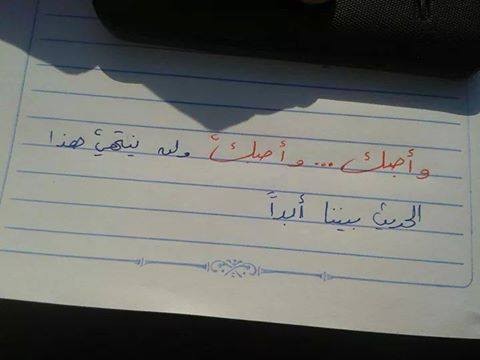 وأحبك ... وأحبك ولن ينتهي هذا
الحديث بيننا أبداً